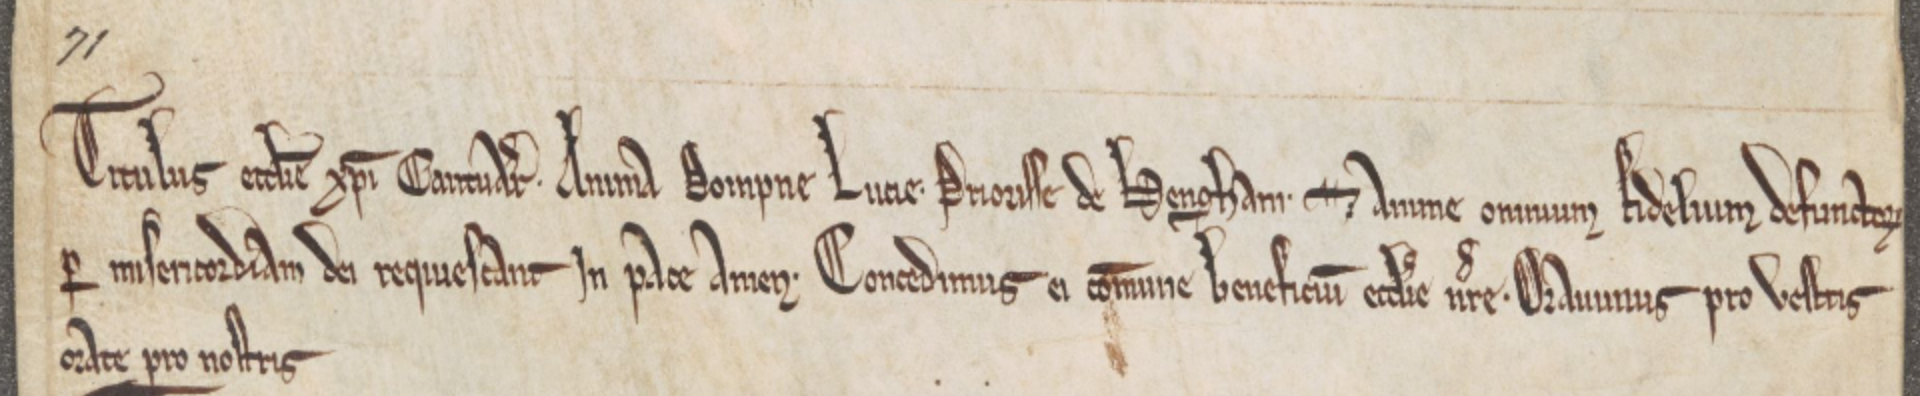 71
Titulus eccl̄ie xp̄i Cantuar̄. Anima Dompne Lucie. Priorisse de Hengham. ⁊ anime omnium fidelium defunctoꝝ
ꝑ misericordiam dei requiescant In pace amen. Concedimus ei com̄une beneficiū eccl̄ie nr̄e. Orauimus pro vestris
orate pro nostris